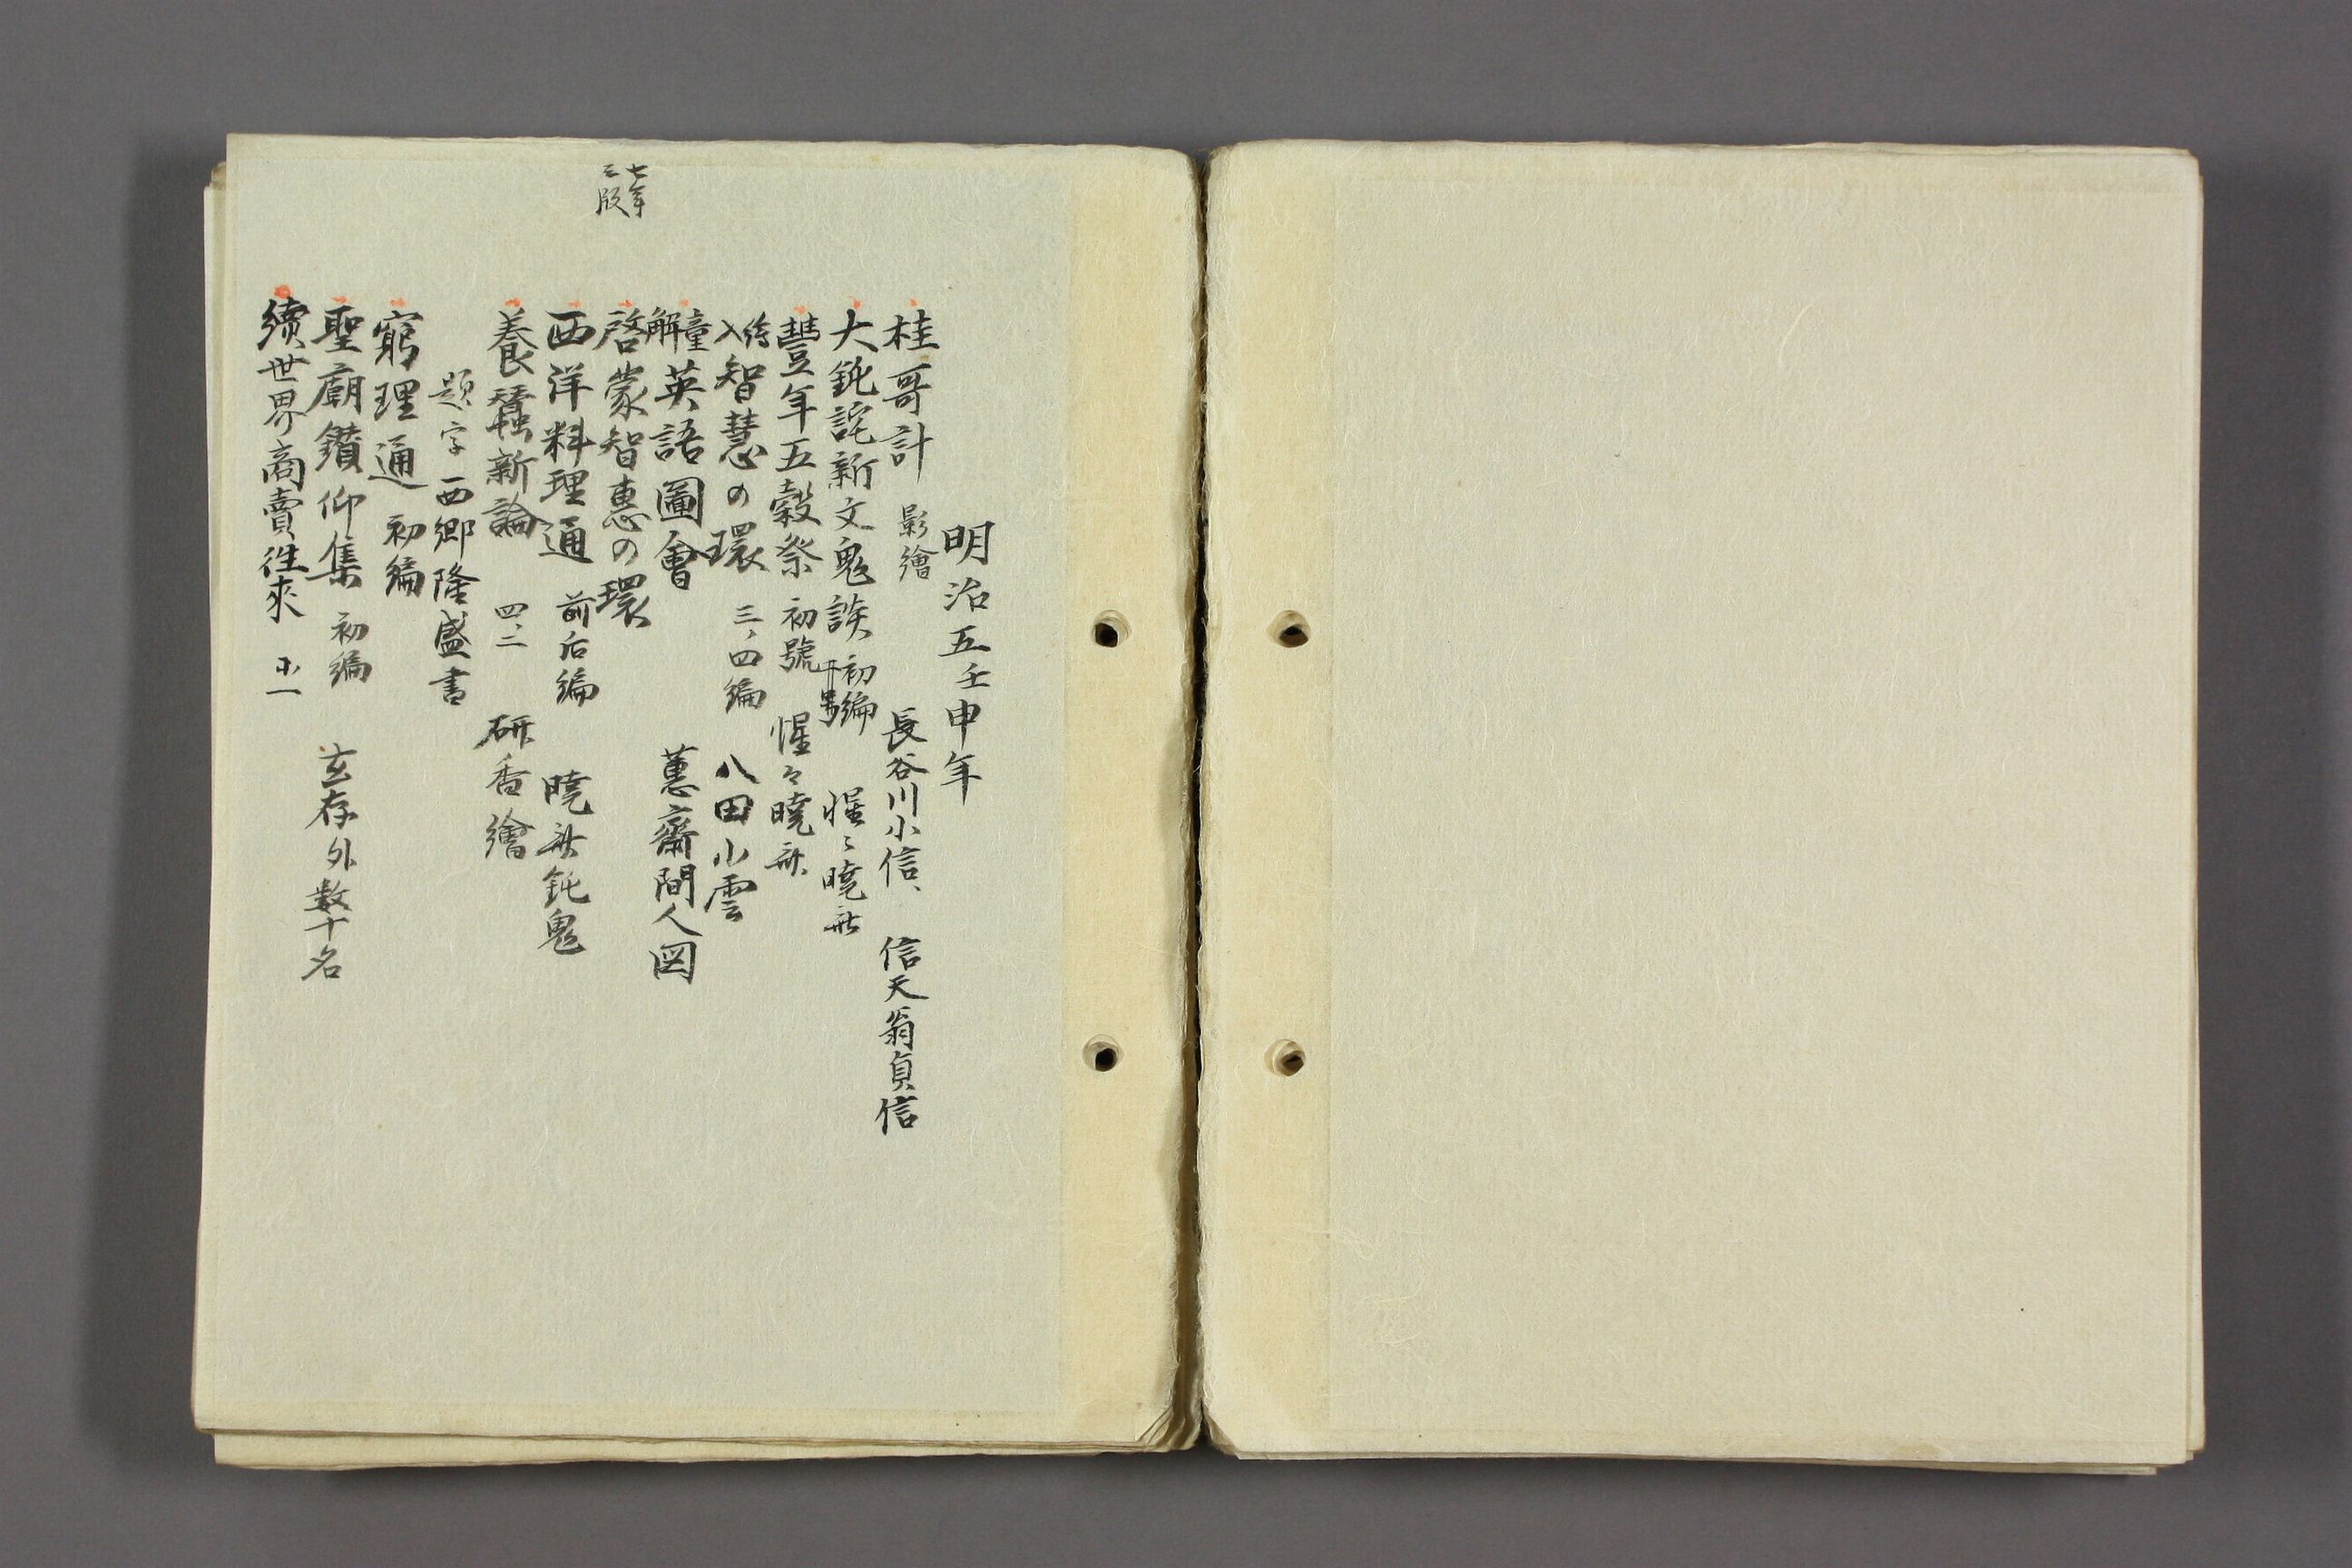 明治五壬申年
桂哥計 影繪 長谷川小信、 信天翁貞信
大鈍詫新文鬼談 初編 惺〻暁斎
豐年五穀祭 初號 惺々暁斎
絵入 智慧の環 三、四編 八田小雲
童解 英語圖會 蕙齋間人図
七年三版
啓蒙智惠の環
西洋料理通 前后編 暁斎鈍鬼
養蠶新論 四、二 研香繪
題字 西郷隆盛書
窮理通 初編
聖廟鑽仰集 初編 玄存外数十名
續世界商賣徃來